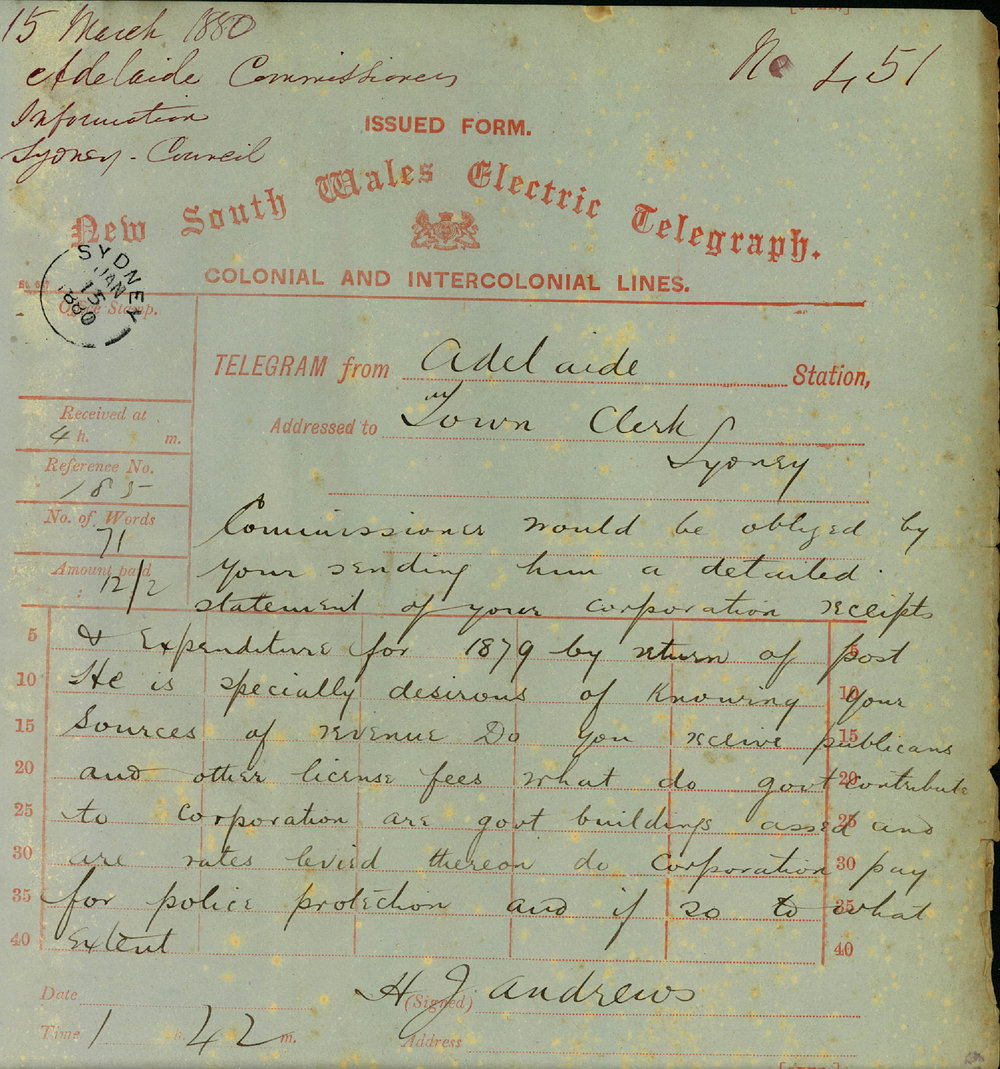 15 March 1880
Adelaide Commissioners
Information
Sydney - Council
No 451
ISSUED FORM.
New South Wales Electric Telegraph.
COLONIAL AND INTERCOLONIAL LINES.
SYDNEY
JAN
15
1880
Office Stamp.
TELEGRAM from Adelaide Station,
Received at
4 h. m.
Addressed to Town Clerk
Sydney
Reference No.
185
No. of Words
71
Amount paid
12/2
Commissioner would be oblged by
your sending him a detailed
statement of your corporation receipts
5 & Expenditure for 1879 by return of post 5
10 He is specially desirous of knowing your 10
15 sources of revenue Do you receive publicans 15
20 and other license fees what do govt contribute 20
25 to corporation are govt buildings assed and 25
30 are rates levied thereon do corporation pay 30
35 for police protection and if so to what 35
40 extent 40
Date
(Signed) H J Andrews
Time 1 h. 42 m.
Address